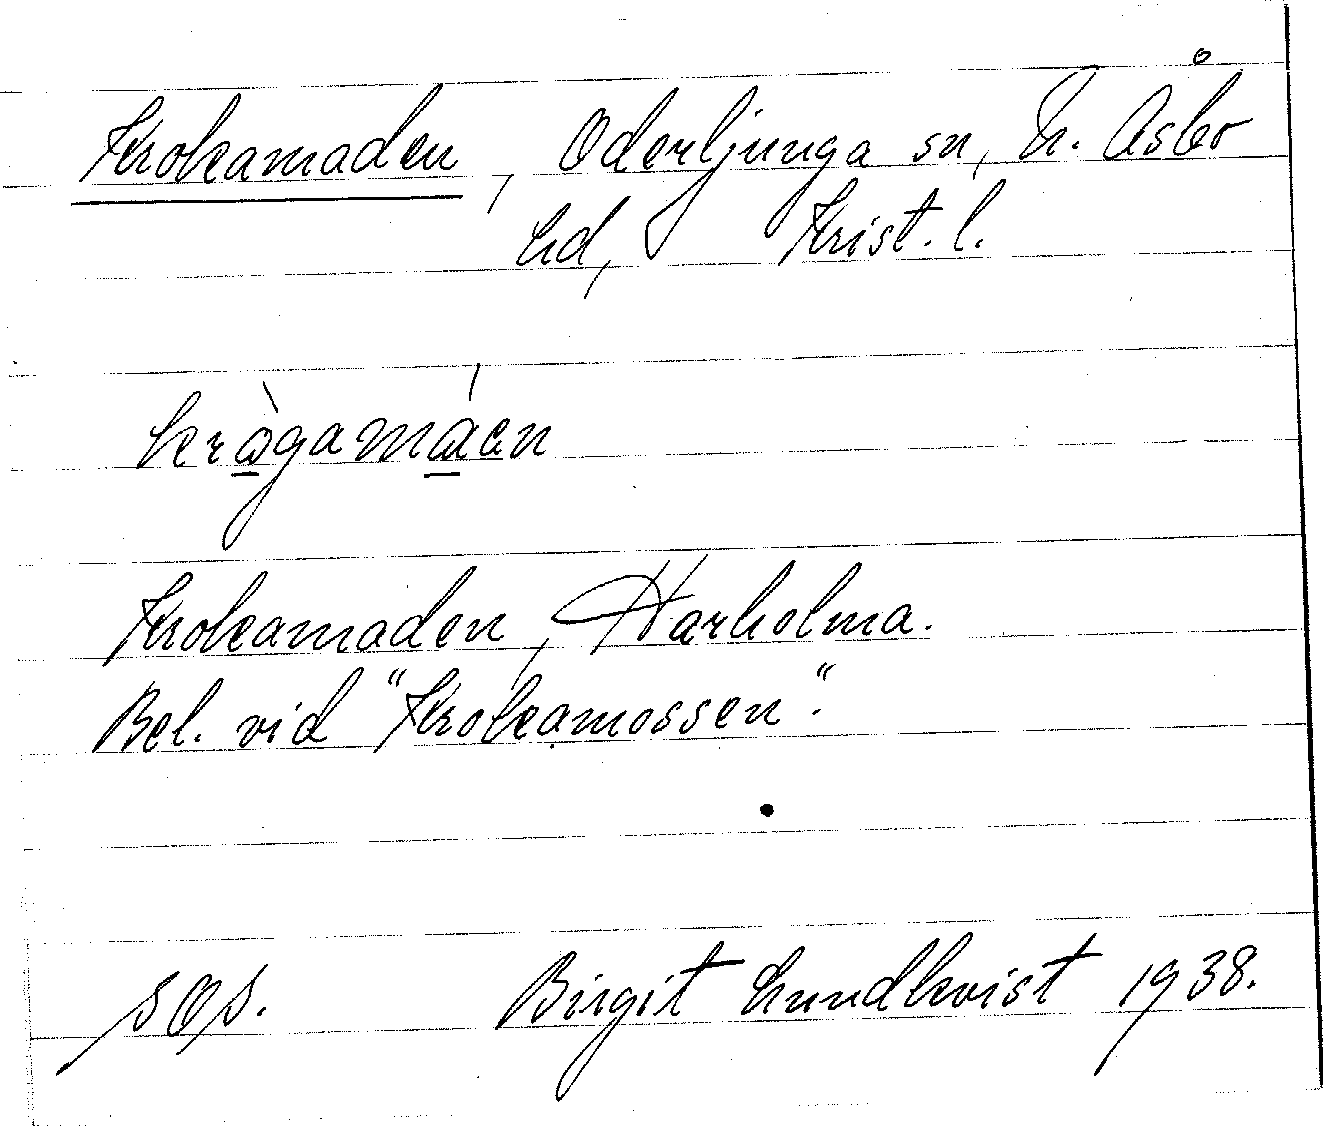 Krokamaden, Oderljunga sn, N. Åsbo
hd, Krist. l.
krågamáen
Krokamaden, Harholma.
Bel. vid "Krokamossen".
SOS. Birgit Lundkvist 1938.